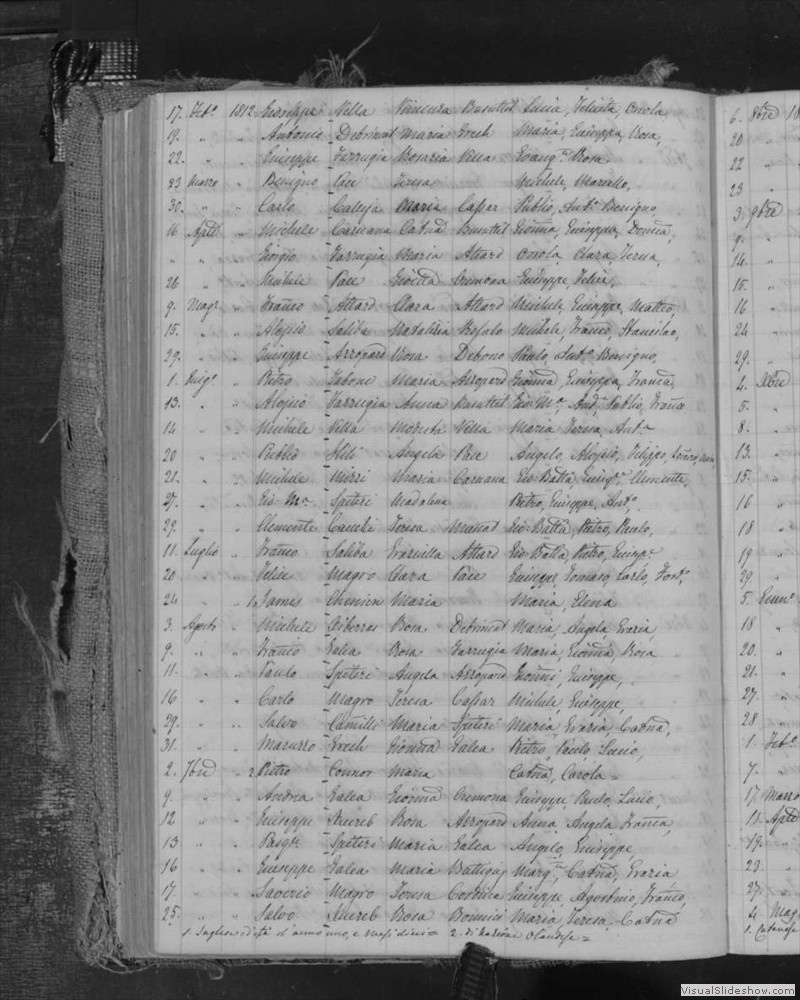 17. Feb.º 1812 Giuseppe Vella Vincura Busuttil Lucia, Felicita, Orsola,
19. " " Antonio Debrincat Maria Grech Maria, Giuseppa, Rosa,
22. " " Giuseppe Farrugia Rosaria Vella Evang.ta Rosa
23 Marzo " Benigno Pace Teresa Michele, Marcello,
30. " " Carlo Calleja Maria Caspar Publio, Ant.º Benigno,
16 Aprile " Michele Caruana Catna Busuttil Gionna, Giuseppa, Domca,
" " " Giorgio Farrugia Maria Attard Orsola, Clara, Teresa,
26 " " Michele Pace Cremona Giuseppe, Felice,
9. Magº " Franco Attard Clara Attard Michele, Giuseppe, Matteo,
15. " " Aloysio Saliba Natalizia Michele, Franco, Stanislao,
29. " " Giuseppe Rosa Debono Paulo, Ant.º Benigno,
1. Giugº " Pietro Tabone Maria Gionna, Giuseppa, Franca,
13. " " Aloysio Farrugia Anna Busuttil Gio Mª, Ant.º Publio, Franca
14 " " Michele Vella Modesta Vella Maria Teresa, Ant.ª
20 " " Publio Angela Pace Angelo, Aloysio, Filippo,
21. " " Michele Mizzi Maria Caruana Gio Batta, Clemente,
27. " " Gio Mª Spiteri Madalena Pietro, Giuseppe, Ant.º,
29. " " Clemente Teresa Muscat Gio Batta, Pietro, Paulo,
11. Luglio " Franco Saliba Graziulla Attard Gio Batta, Pietro, Giusepe
20 " " Felice Magro Clara Pace Giuseppe, Tomaso, Carlo, Fort.º
24 " 1. James Maria Maria, Elena
3. Agosto " Michele Ciberras Rosa Debrincat Maria, Angela, Grazia,
9. " " Franco Galea Rosa Farrugia Maria, Gionna, Rosa
11. " " Paulo Spiteri Angela Gionni, Giuseppe,
16 " " Carlo Magro Teresa Caspar Michele, Giuseppe,
29. " " Salvo Camilli Maria Spiteri Maria, Grazia, Catna,
31. " " Grech Gionna Galea Pietro, Paulo, Lucio,
2. 7bre " 2 Pietro Connor Maria Catna, Carola =
9. " " Andrea Galea Gionna Cremona Giuseppe, Paulo, Lucio,
12 " " Giuseppe Xuereb Rosa Anna, Angela, Franca,
13 " " Pasqe Spiteri Maria Galea Angelo, Giuseppe
16 " " Giuseppe Galea Maria Margta, Catna, Grazia
17 " " Saverio Magro Teresa Giuseppe, Agostino, Franco,
25. " " Salvo Xuereb Rosa Bonnici Maria, Teresa, Catna
1. Inglese d'età d'anno uno, e mesi dieci = 2. di Nazione Olandese =
6. 8bre 18
20 "
22 "
23 "
3. 9bre
9. "
14. "
15. "
16 "
24 "
29. "
4. Xbre
5. "
8. "
13. "
15. "
16 "
18 "
19 "
29. "
5. Genn.º
18 "
20. "
21. "
27. "
28 "
1. Feb.º
7. "
17. Marzo
11. Aprile
19. "
23. "
27. "
4 Mag
VisualSlideshow.com